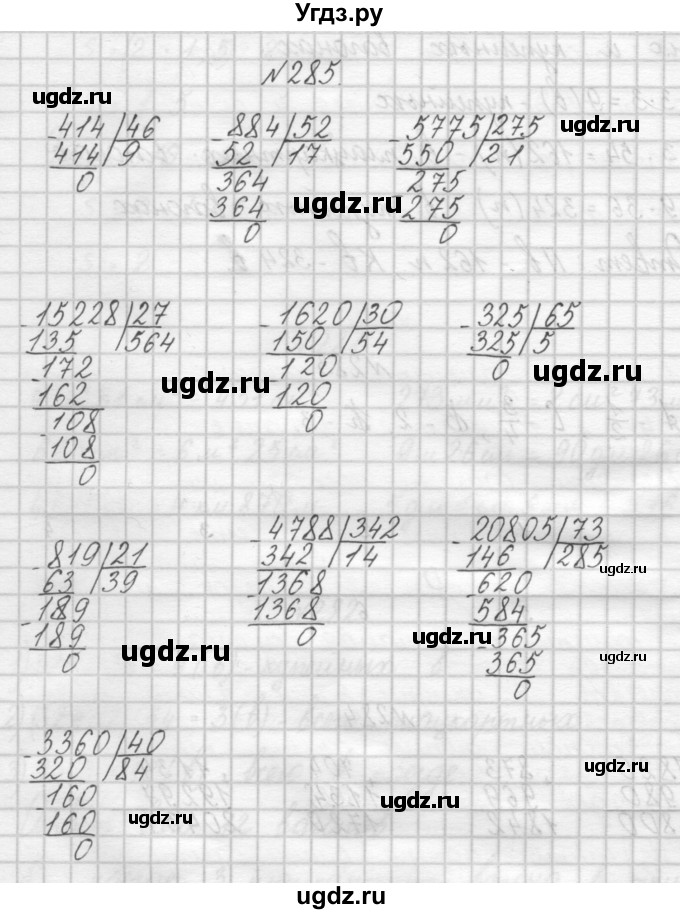 Угдз.ру
№285.
ugdz.ru
-414|46 -884|52 -5775|275 ugdz.ru
414|9 52|17 550|21
0 364 275
364 ugdz.ru 275
0 0
-15228|27 -1620|30 -325|65
135|564 150|54 325|5
-172 120 0 ugdz.ru
162 ugdz.ru 120
-108 0
108
0
-819|21 -4788|342 -20805|73
63|39 342|14 146|285 ugdz.ru
-189 -1368 -620
189 1368 584
0 0 ugdz.ru -365
ugdz.ru 365 ugdz.ru
0
-3360|40
320|84 ugdz.ru
-160 ugdz.ru
160 ugdz.ru
0
ugdz.ru